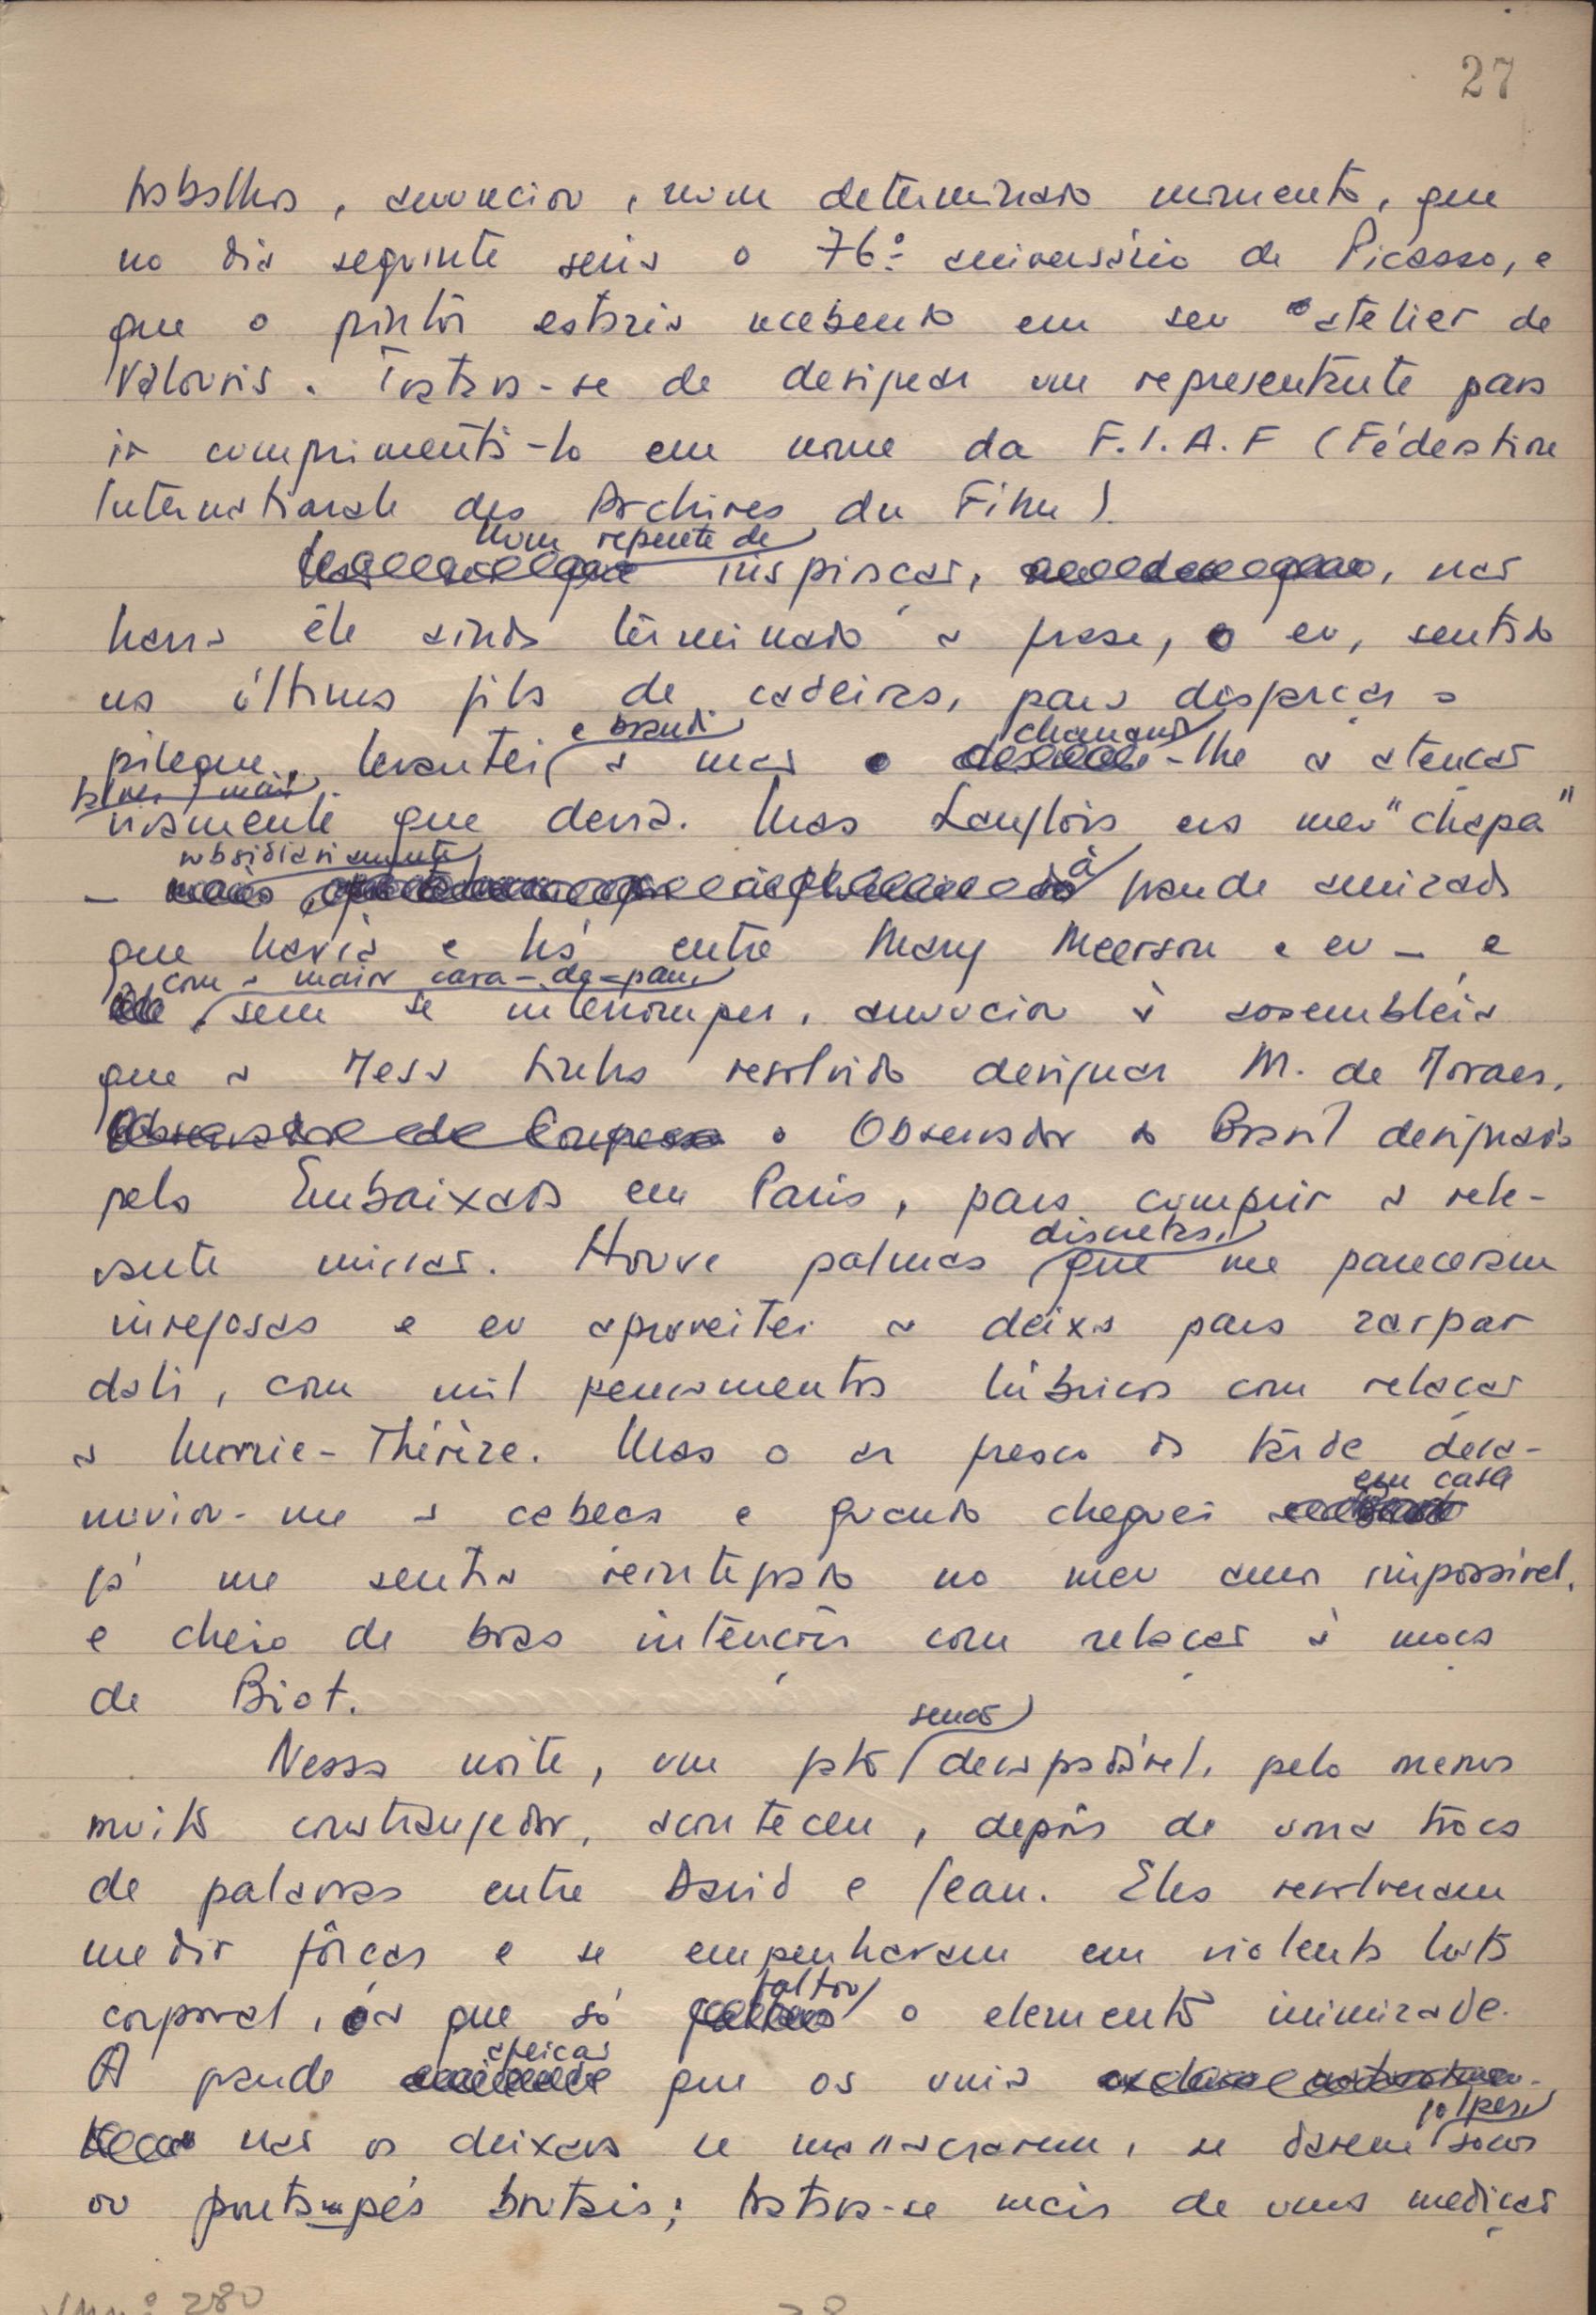 27
trabalhos, anunciou, num determinado momento, que
no dia seguinte seria o 76º aniversário de Picasso, e
que o pintor estaria recebendo em seu atelier de
Valouris. Tratava-se de designar um representante para
ir comprimentá-lo em nome da F.I.A.F (Féderation
Internationale des Archives du Film).
Num repente de
inspiração, não
havia êle ainda terminado a frase, e eu, sentado
na última fila de cadeiras, para disfarçar o
e brandi chamando
pileque, levantei a mão -lhe a atenção
talvez mais
vivamente que devia. Mas Langlois era meu "chapa"
subsidiariamente
- à grande amizade
que havia e há entre Mary Meerson e eu - e
com a maior cara-de-pau,
sem se interromper, anunciou à assembléia
que a Mesa tinha resolvido designar M. de Moraes,
Observador de Congresso o Observador do Brasil designado
pela Embaixada em Paris, para cumprir a rele-
discretas,
vante missão. Houve palmas que me pareceram
invejosas e eu aproveitei a deixa para zarpar
dali, com mil pensamentos lúbricos com relação
a Marie-Thérèze. Mas o ar fresco da tarde desa-
em casa
nuviou-me a cabeça e quando cheguei
já me sentia reintegrado no meu amor impossível,
e cheio de boas intenções com relação à moça
de Biot.
senão
Nessa noite, um fato desagradável, pelo menos
muito constrangedor, aconteceu, depois de uma troca
de palavras entre David e Jean. Eles resolveram
medir fôrças e se empenharam em violenta luta
faltou
corporal, da que só o elemento inimizade.
afeição
A grande que os unia
golpes,
não os deixava se massacrarem, se darem socos
ou pontapés brutais; tratava-se mais de uma medição
280
28